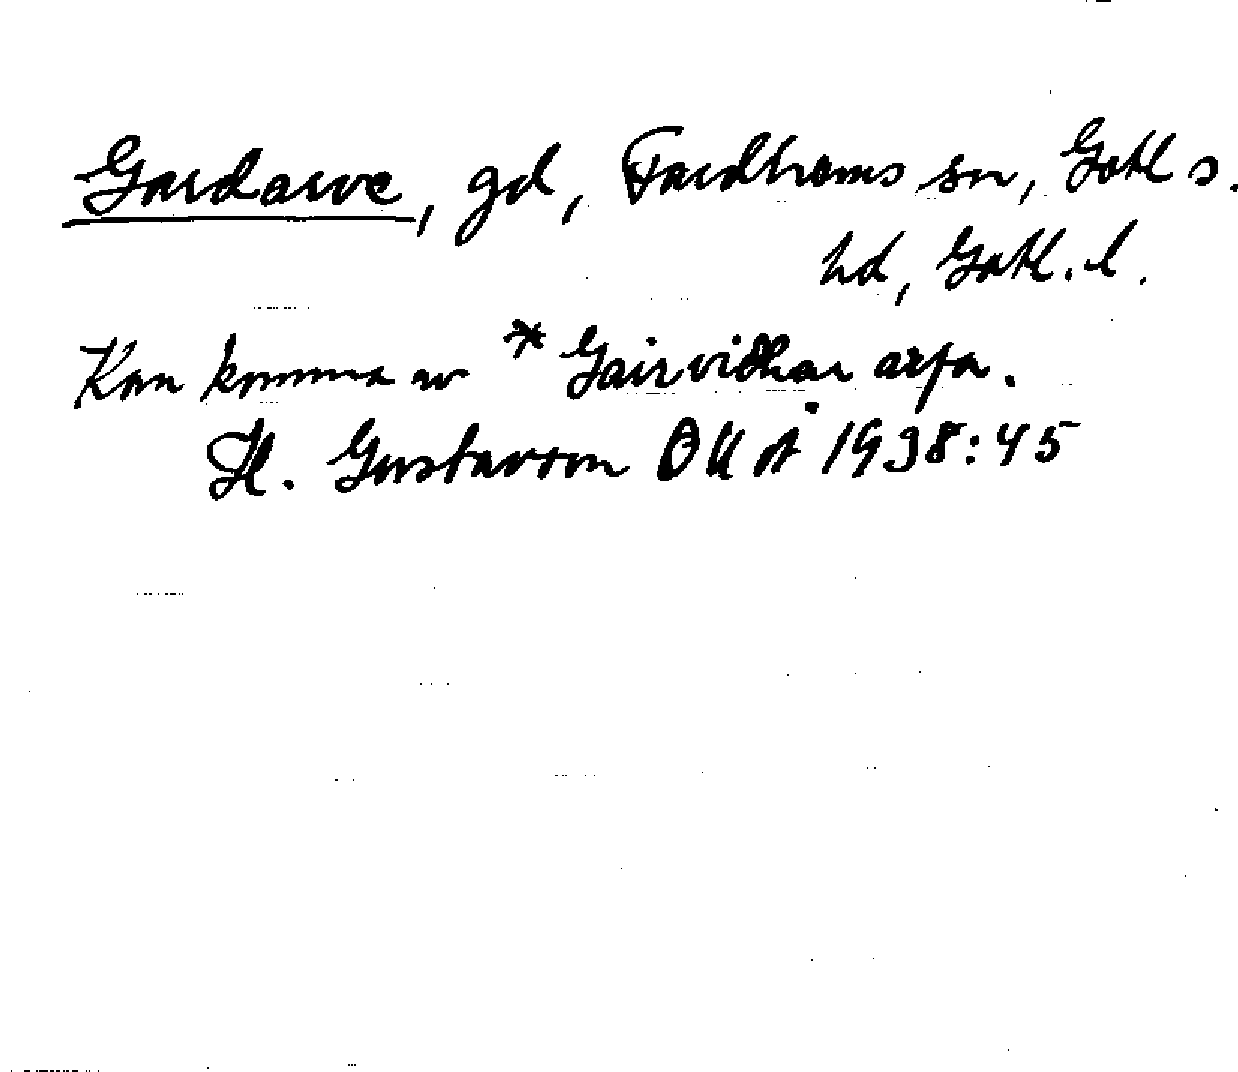 Gardarve, gd, Fardhems sn, Gotl s.
hd, Gotl. l.
Kan komma av *Gairvidhar arfa.
H. Gustavson OUÅ 1938:45